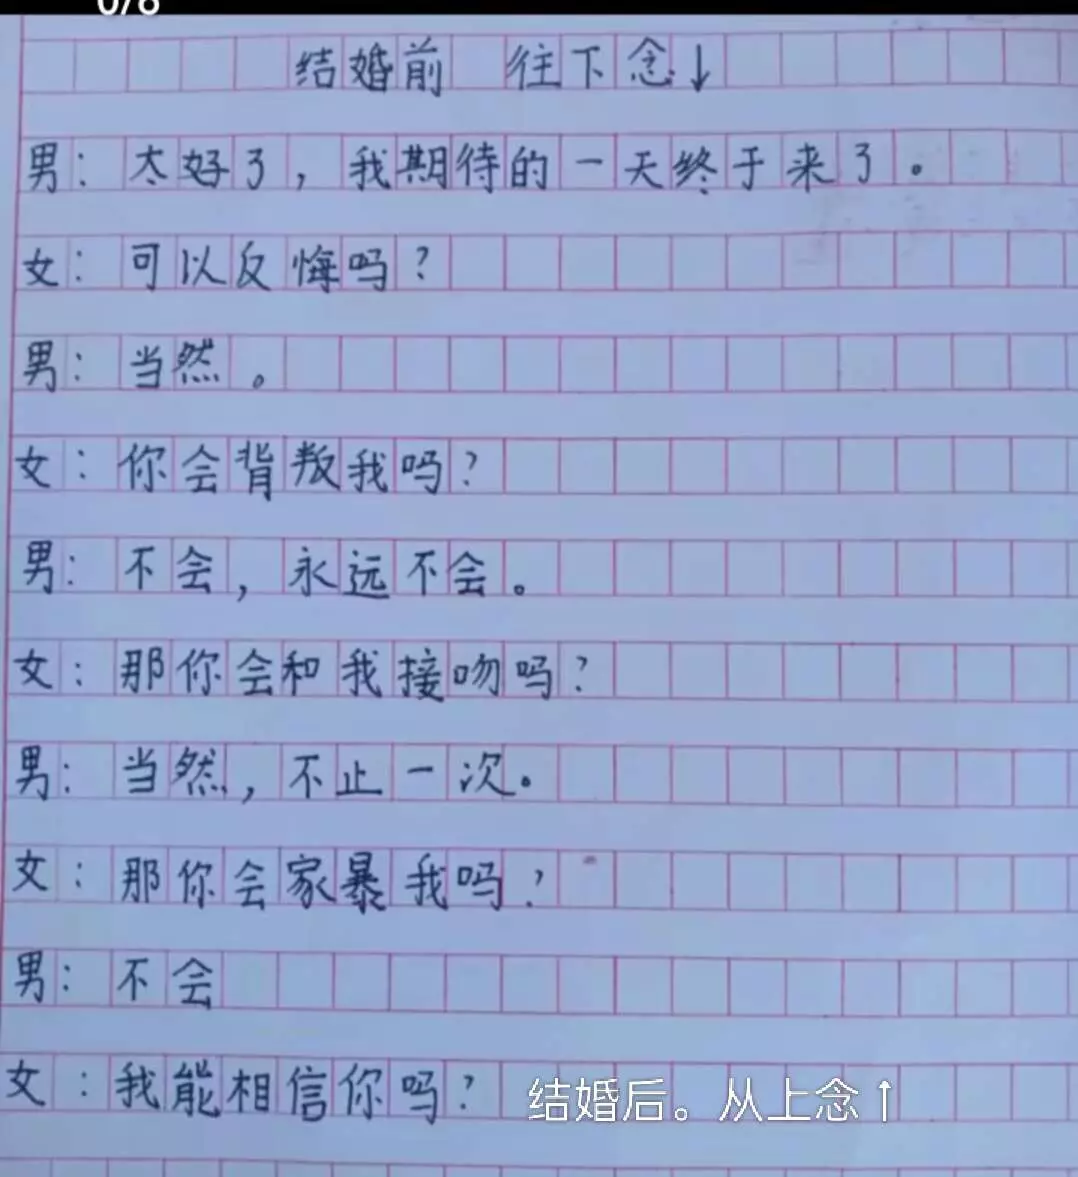 0/8
结婚前 往下念↓
男：太好了，我期待的一天终于来了。
女：可以反悔吗？
男：当然。
女：你会背叛我吗？
男：不会，永远不会。
女：那你会和我接吻吗？
男：当然，不止一次。
女：那你会家暴我吗？
男：不会
女：我能相信你吗？ 结婚后。从上念↑